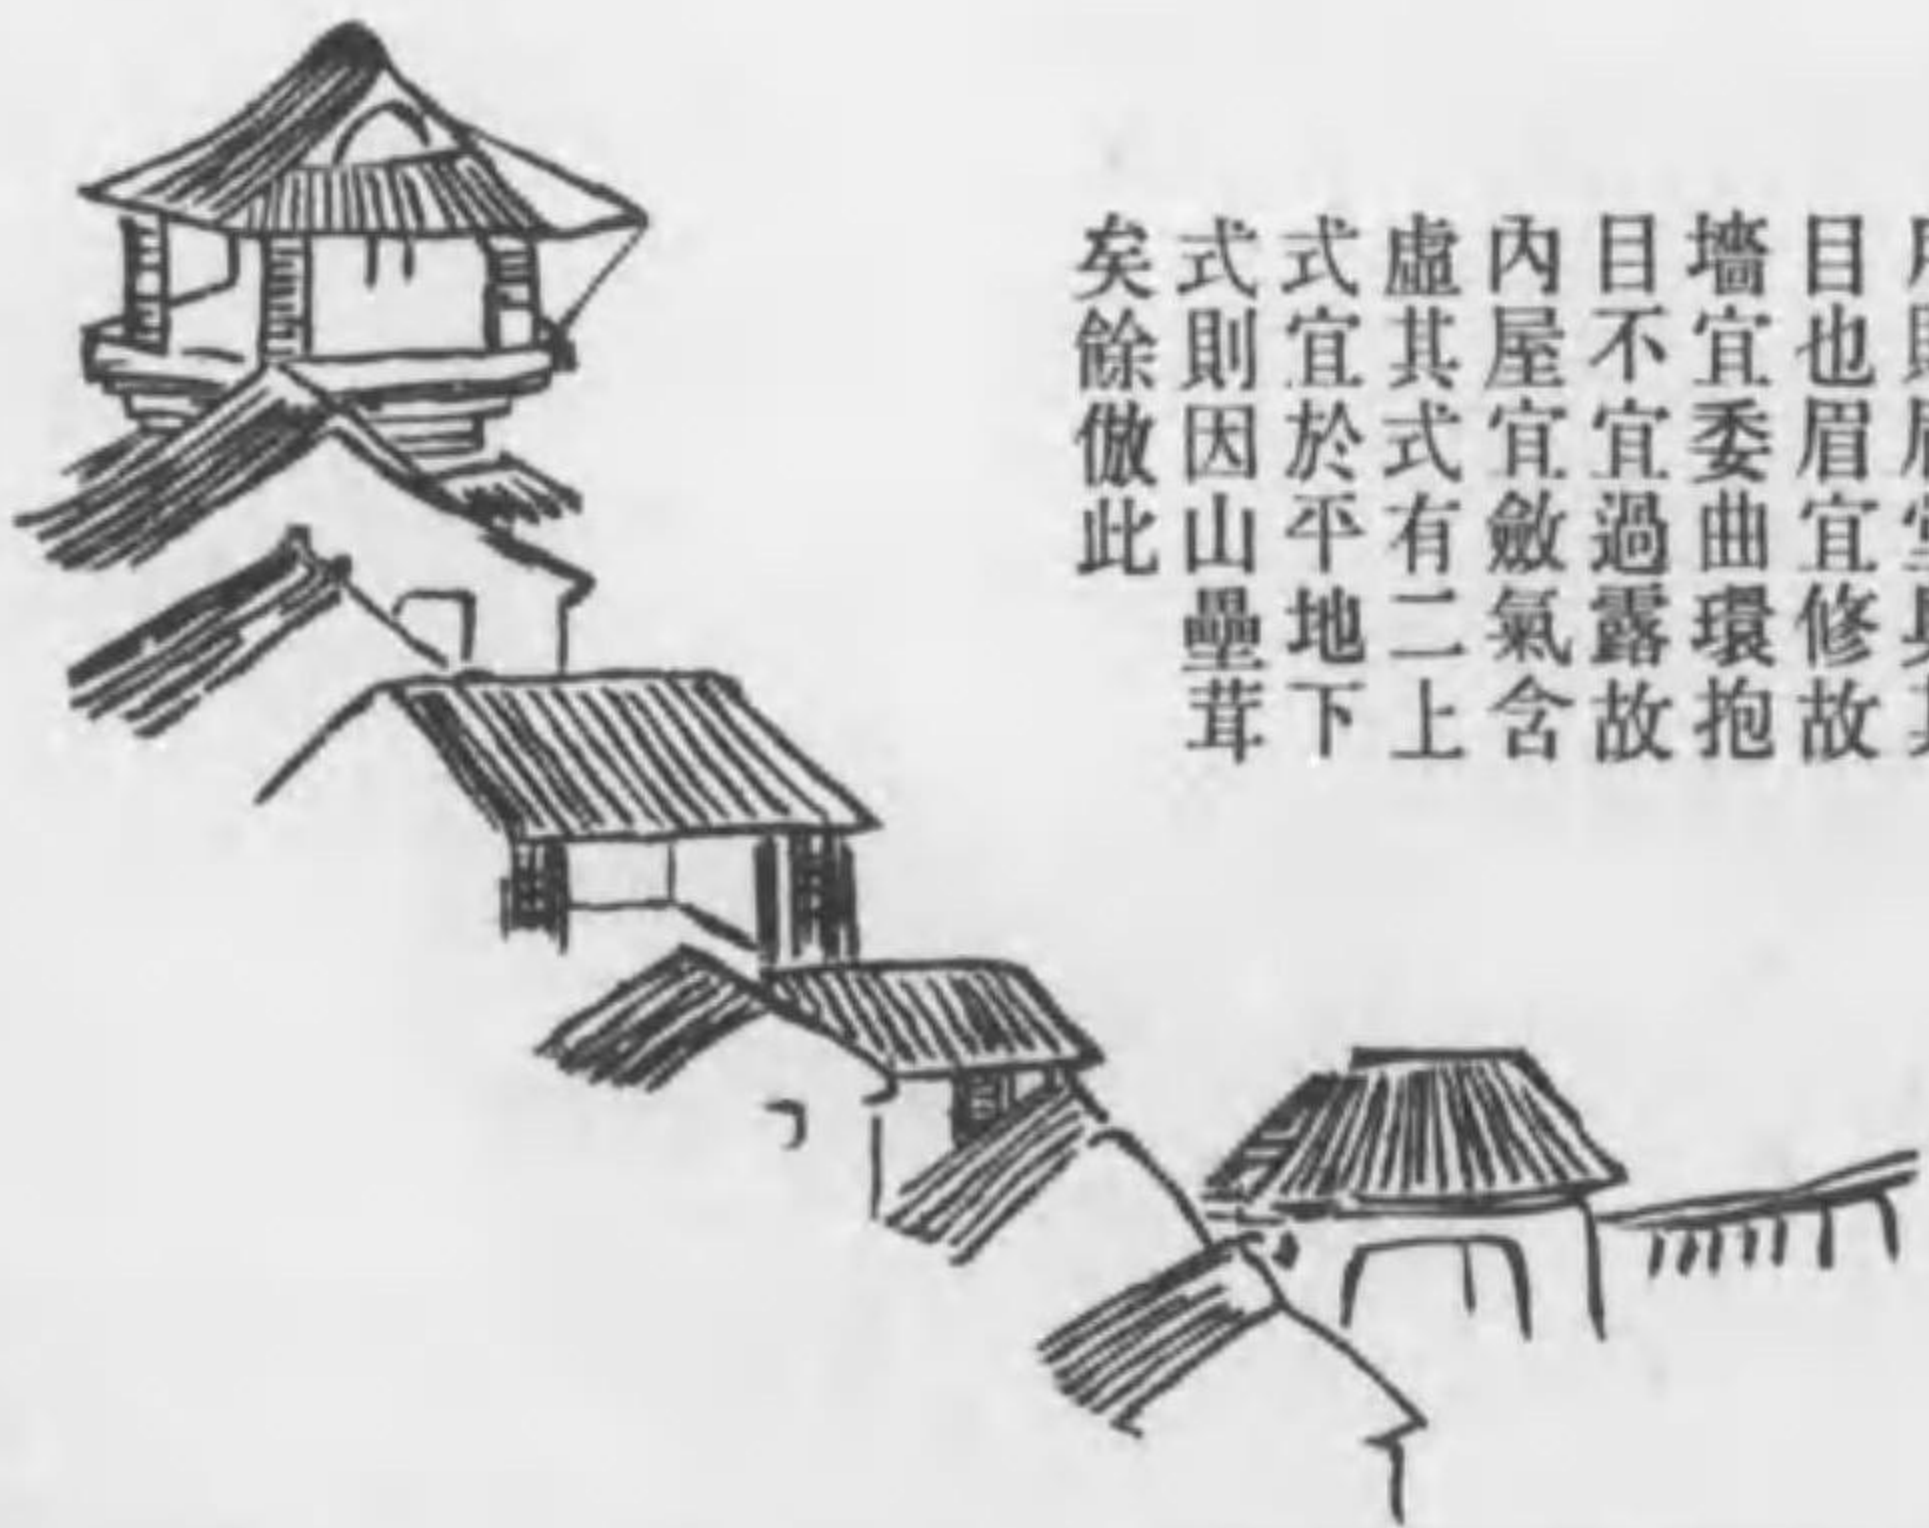 目也眉宜修故
墻宜委曲環抱
目不宜過露故
內屋宜斂氣含
虛其式有二上
式宜於平地下
式則因山壘茸
矣餘倣此